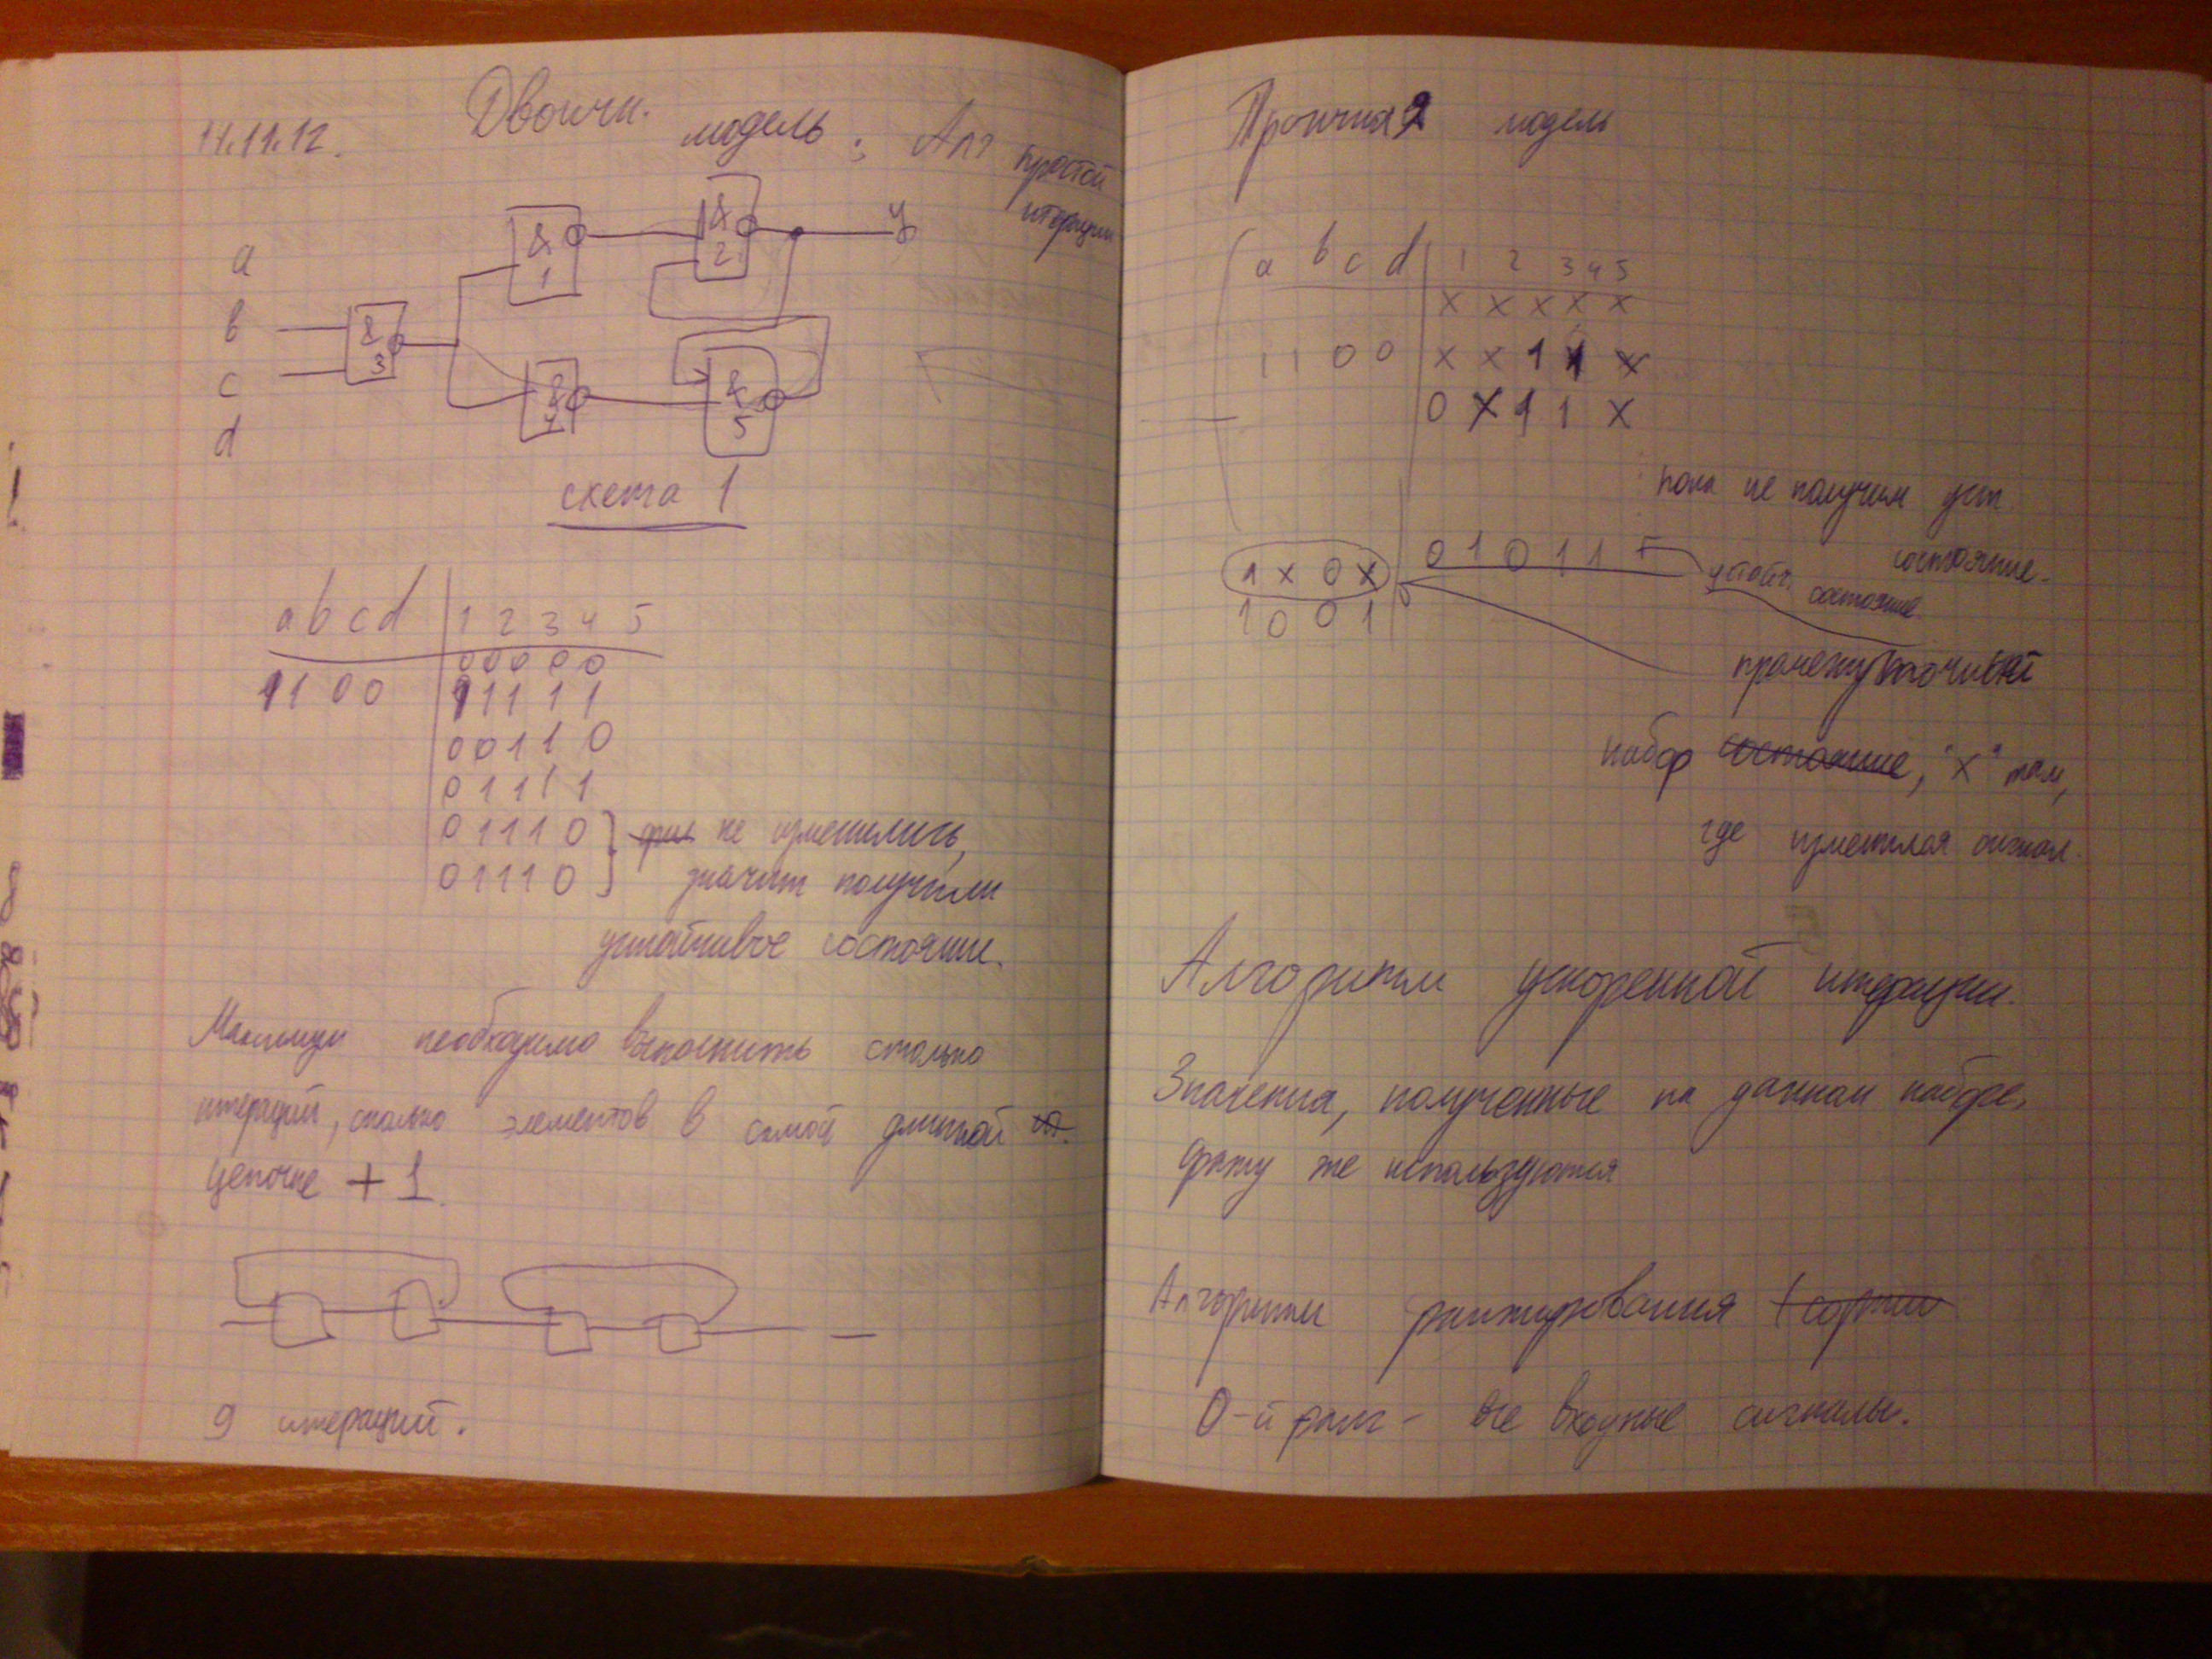 14.11.12.
Двоичн. модель; Алг простой
итерации
a
b
c
d
& 1
& 2
& 3
& 4
& 5
y
схема 1
a b c d 1 2 3 4 5
0 0 0 0 0
1 1 0 0 1 1 1 1 1
0 0 1 1 0
0 1 1 1 1
0 1 1 1 0 не изменились,
0 1 1 1 0 значит получили
устойчивое состояние.
Максимум необходимо выполнить столько
итераций, сколько элементов в самой длинной
цепочке + 1.
9 итераций.
Троичная модель
a b c d 1 2 3 4 5
x x x x x
1 1 0 0 x x 1 1 x
0 x 1 1 x
пока не получим уст.
состояние.
1 x 0 x 0 1 0 1 1
устойч. состояние
1 0 0 1
промежуточный
набор состояние, "x" там,
где изменился сигнал.
Алгоритм ускоренной итерации.
Значения, полученные на данном наборе,
сразу же используются
Алгоритм ранжирования
0-й ранг - все входные сигналы.